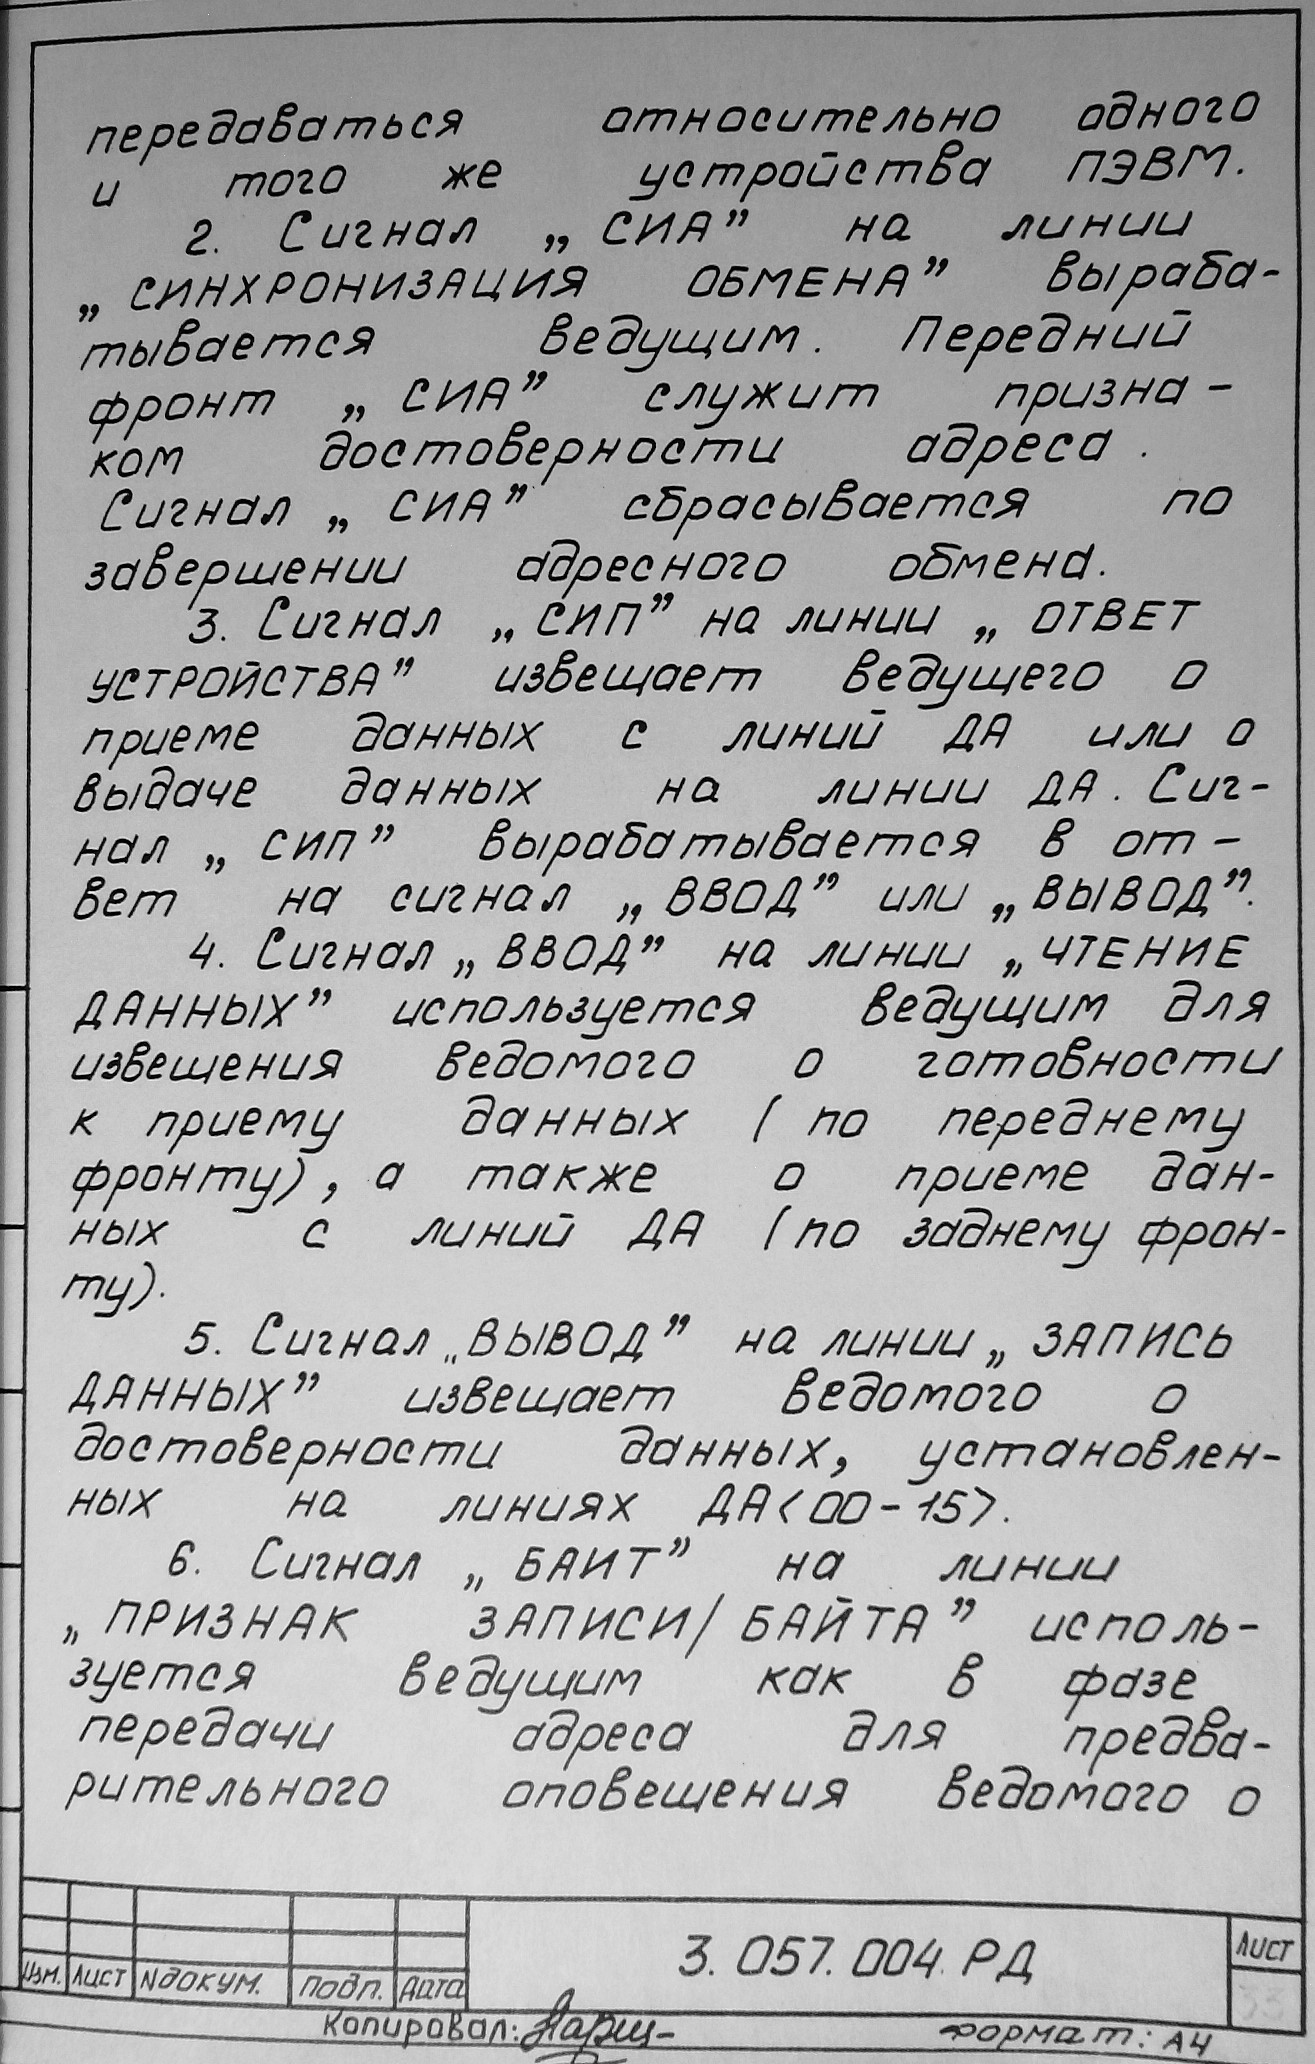 передаваться относительно одного
и того же устройства ПЭВМ.
2. Сигнал „СИА” на линии
„СИНХРОНИЗАЦИЯ ОБМЕНА” выраба-
тывается ведущим. Передний
фронт „СИА” служит призна-
ком достоверности адреса.
Сигнал „СИА” сбрасывается по
завершении адресного обмена.
3. Сигнал „СИП” на линии „ОТВЕТ
УСТРОЙСТВА” извещает ведущего о
приеме данных с линий ДА или о
выдаче данных на линии ДА. Сиг-
нал „СИП” вырабатывается в от-
вет на сигнал „ВВОД” или „ВЫВОД”.
4. Сигнал „ВВОД” на линии „ЧТЕНИЕ
ДАННЫХ” используется ведущим для
извещения ведомого о готовности
к приему данных (по переднему
фронту), а также о приеме дан-
ных с линий ДА (по заднему фрон-
ту).
5. Сигнал „ВЫВОД” на линии „ЗАПИСЬ
ДАННЫХ” извещает ведомого о
достоверности данных, установлен-
ных на линиях ДА<00-15>.
6. Сигнал „БАИТ” на линии
„ПРИЗНАК ЗАПИСИ/БАЙТА” исполь-
зуется ведущим как в фазе
передачи адреса для предва-
рительного оповещения ведомого о
3.057.004 РД
Лист
33
Изм. Лист № докум. Подп. Дата
Копировал:
Формат: А4